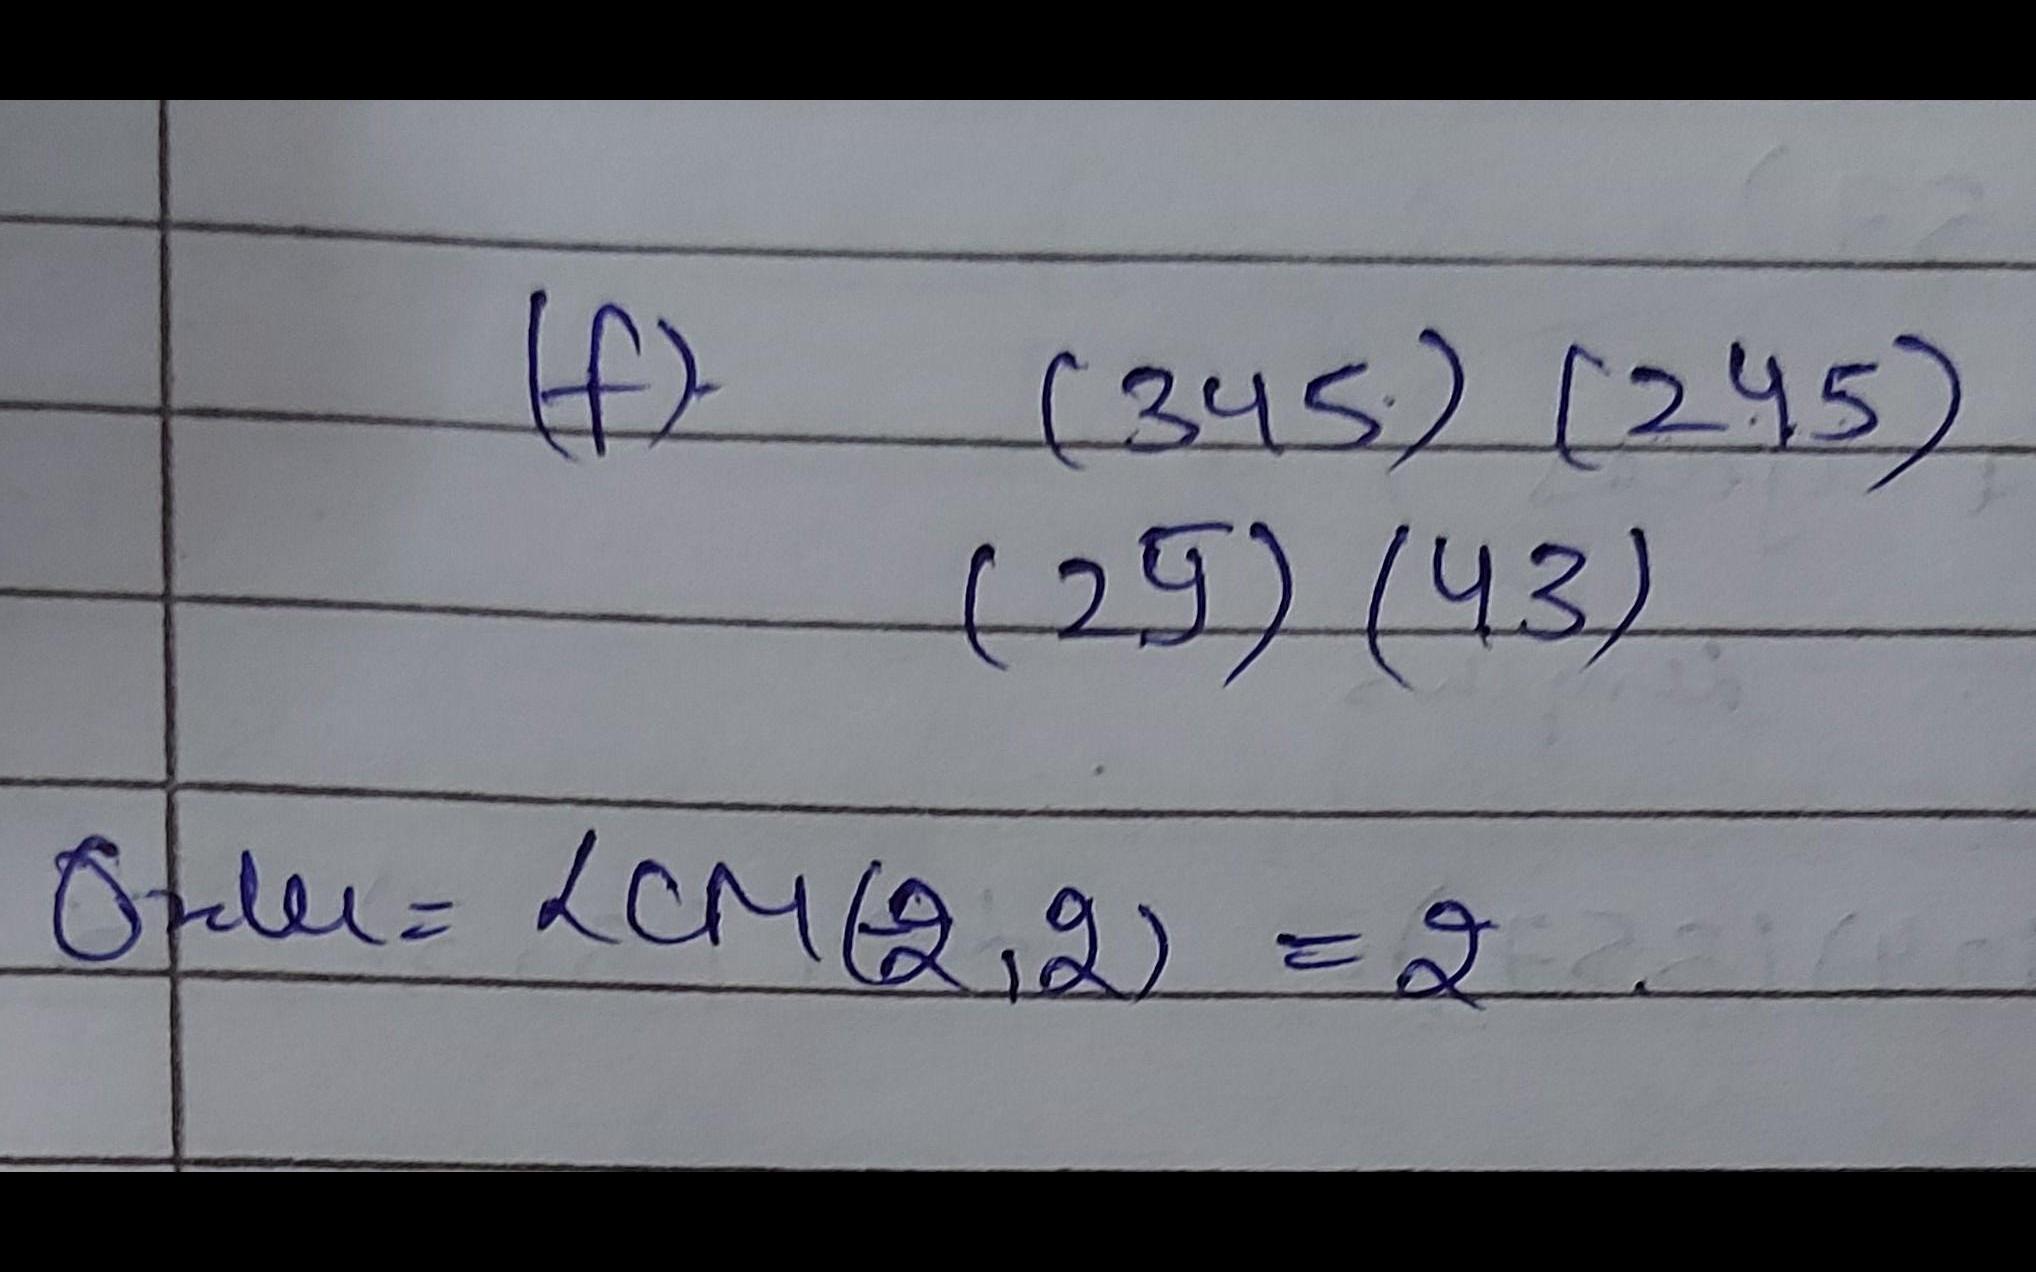 (f). (345) (245)
(25) (43)
Order = LCM(2,2) = 2.